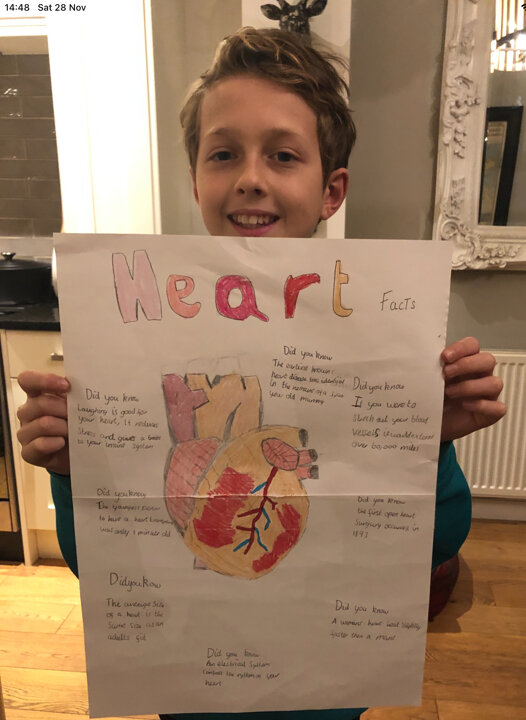 14:48 Sat 28 Nov
Heart Facts
Did you know
The earliest known
heart disease was identified
in the remains of a 3,500
year old mummy
Did you know
Laughing is good for
your heart, it reduces
stress and gives a boost
to your immune system
Did you know
If you were to
strech out your blood
vessels it would extend
over 60,000 miles
Did you know
The youngest person
to have a heart
was only 1 minute old
Did you know
the first open heart
occured in
1893
Did you know
The average size
of a heart is the
same size as an
adults fist
Did you know
A womans heart beat slightly
faster than a mans
Did you know
An electrical system
control the rythm of your
heart